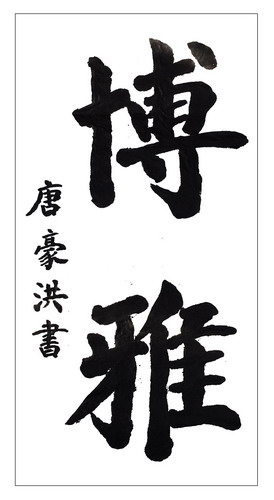 博雅
唐豪洪書